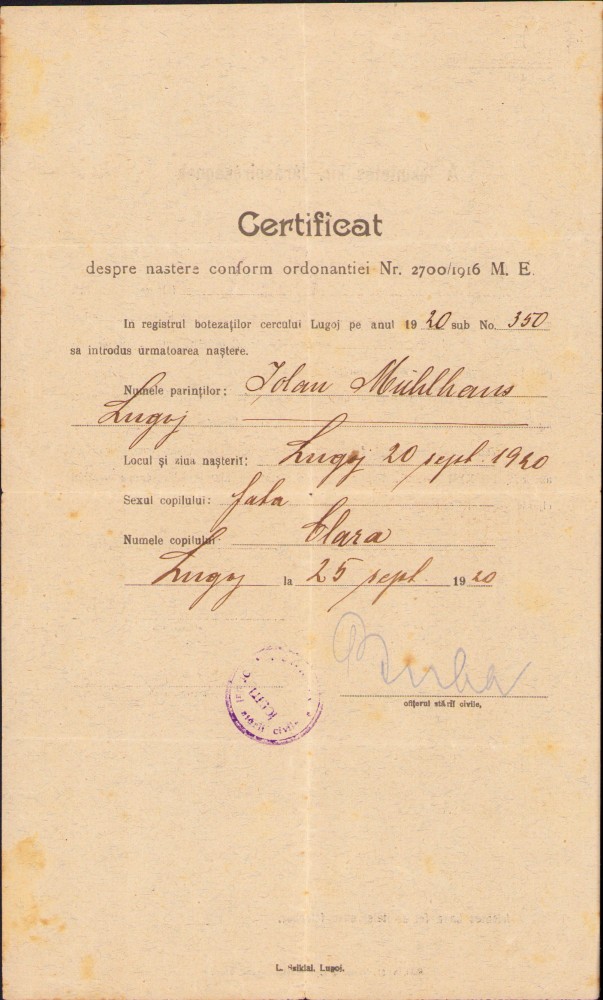 Certificat
despre nastere conform ordonantiei Nr. 2700/1916 M. E.
In registrul botezaților cercului Lugoj pe anul 1920 sub No. 350
sa introdus urmatoarea naștere.
Numele parinților: Iolan Mühlhans
Lugoj
Locul și ziua nașterii: Lugoj 20 sept. 1920
Sexul copilului: fata
Numele copilului: Clara
Lugoj la 25 sept. 1920
ofițerul stării civile,
stării civile
Lugoj.